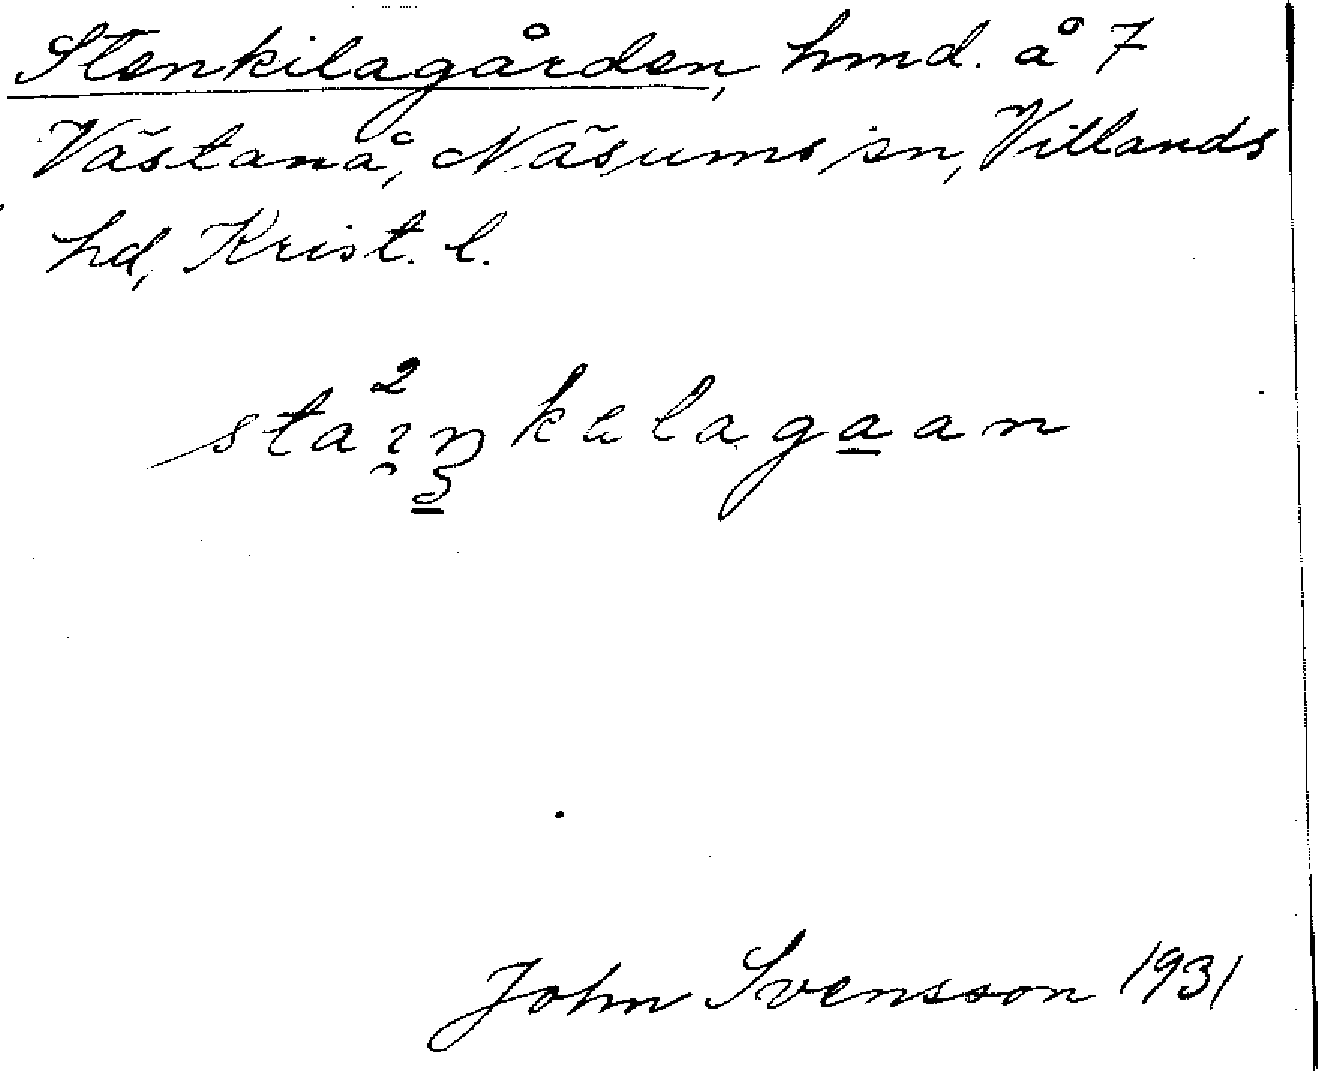 Stenkilagården, hmd. å 7
Västanå, Näsums sn, Villands
hd, Krist. l.
John Svensson 1931